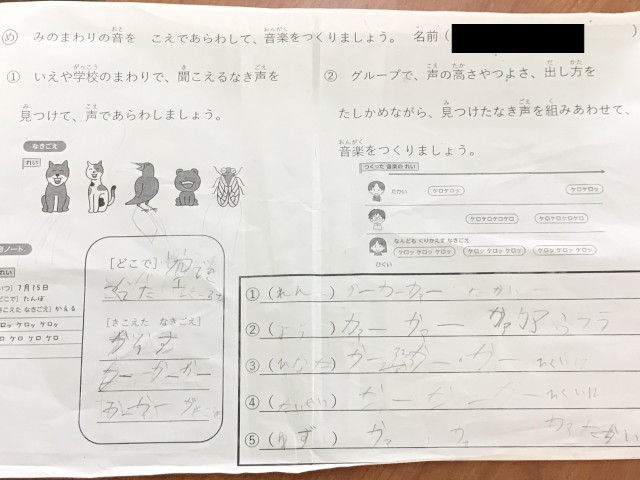 め みのまわりの音を こえであらわして、音楽をつくりましょう。 名前（
① いえや学校のまわりで、聞こえるなき声を
見つけて、声であらわしましょう。
なきごえ
れい
れい
いつ］7月15日
どこで］たんぼ
きこえた なきごえ］かえる
ロッ ケロッ ケロッ
ロ ケロ ケロ ケロ
［どこで］
［きこえた なきごえ］
からす
カー カーカー
② グループで、声の高さやつよさ、出し方を
たしかめながら、見つけたなき声を組みあわせて、
音楽をつくりましょう。
つくった 音楽の れい
たかい
ケロケロッ ケロケロッ
ケロケロケロケロ ケロケロケロケロ
なんども くりかえす なきごえ
ケロッ ケロッ ケロッ ケロッ ケロッ ケロッ ケロッ ケロッ ケロッ
ひくい
①（れん）カーカーカー
②（よう）カァー カァー ふつう
③（ひなた）カー ひくい
④ カー カー ひくい
⑤（ゆず）カァ カァ